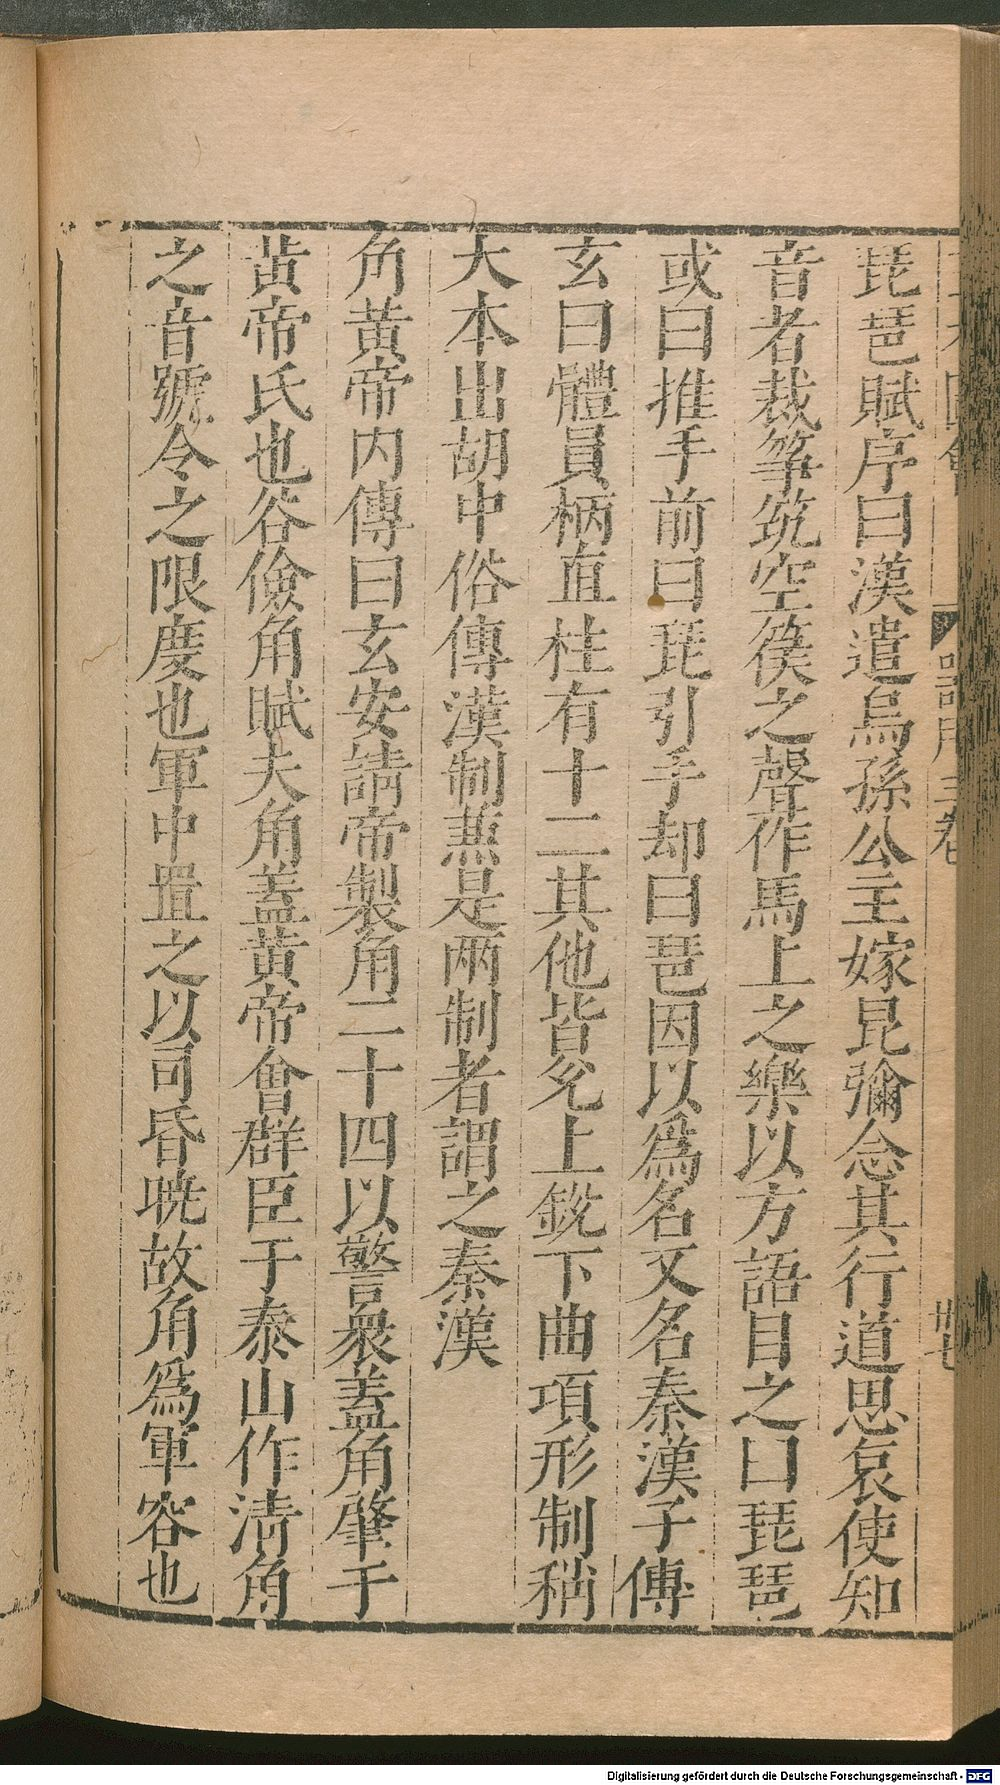 琵琶賦序曰漢遣烏孫公主嫁昆彌念其行道思哀使知
音者裁筝筑空篌之聲作馬上之樂以方語目之曰琵琶
或曰推手前曰琵引手却曰琶因以爲名又名秦漢子傳
玄曰體員柄直柱有十二其他皆兊上銳下曲項形制稍
大本出胡中俗傳漢制兼是兩制者謂之秦漢
角黃帝内傳曰玄女請帝製角二十四以警衆蓋角肇于
黃帝氏也谷儉角賦夫角蓋黃帝會群臣于泰山作清角
之音號令之限度也軍中置之以司昏曉故角爲軍容也
器用三卷
廿七
Digitalisierung gefördert durch die Deutsche Forschungsgemeinschaft - DFG